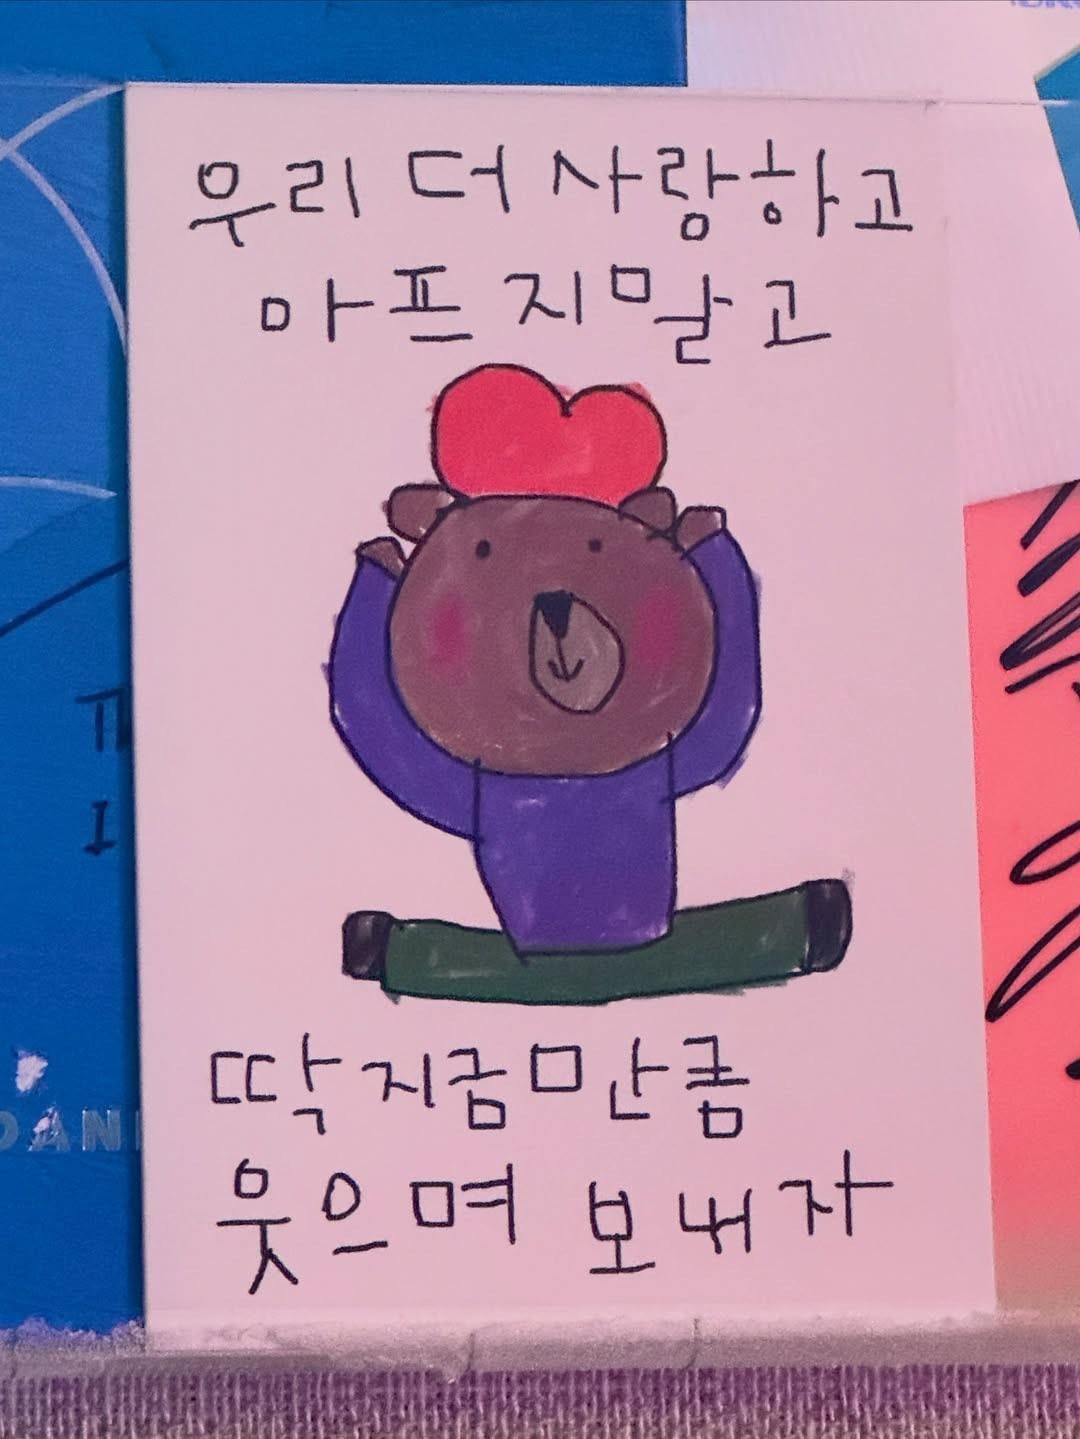 우리 더 사랑하고
아프지말고
딱지금만큼
웃으며 보내자
DAN